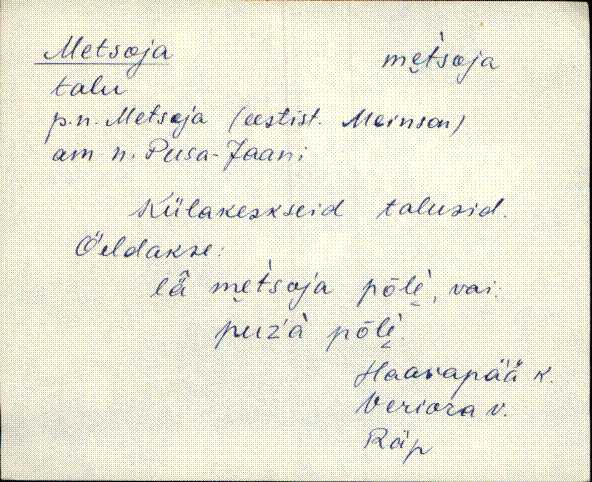 Metsoja met'soja
talu
p.n. Metsoja (eestist. Meinson)
am. n. Pusa-Jaani
Külakeskseid talusid.
Öeldakse:
lä̂ met'soja põlè, vai
puzà põlè.
Haavapää k.
Veriora v.
Räp